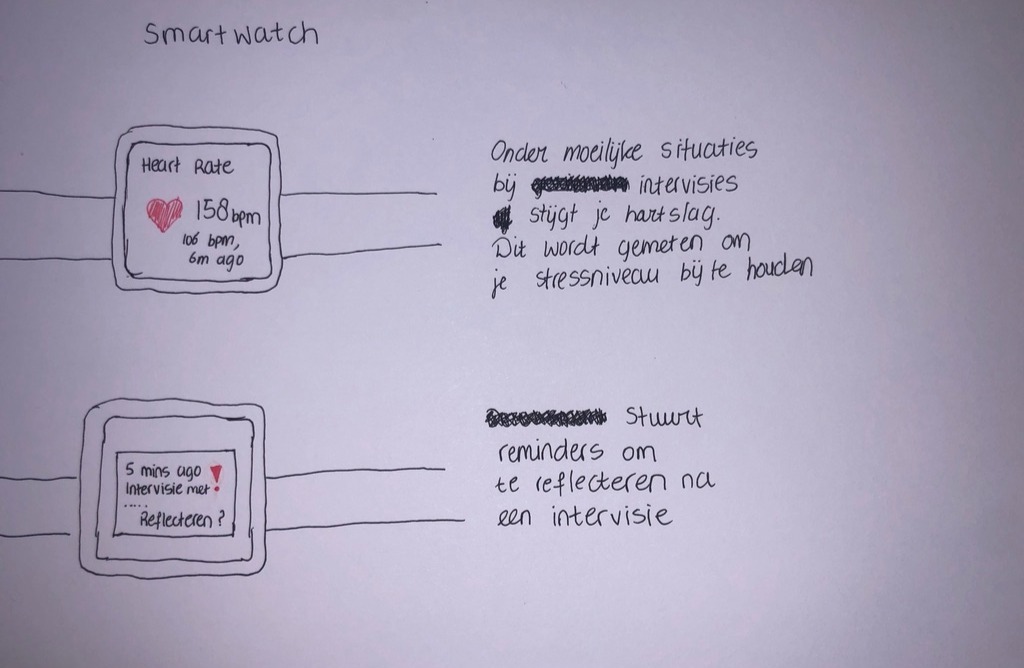 Smartwatch
Heart Rate
158 bpm
106 bpm,
6m ago
Onder moeilijke situaties
bij intervisies
stijgt je hartslag.
Dit wordt gemeten om
je stressniveau bij te houden
5 mins ago !
Intervisie met
.....
Reflecteren?
Stuurt
reminders om
te reflecteren na
een intervisie